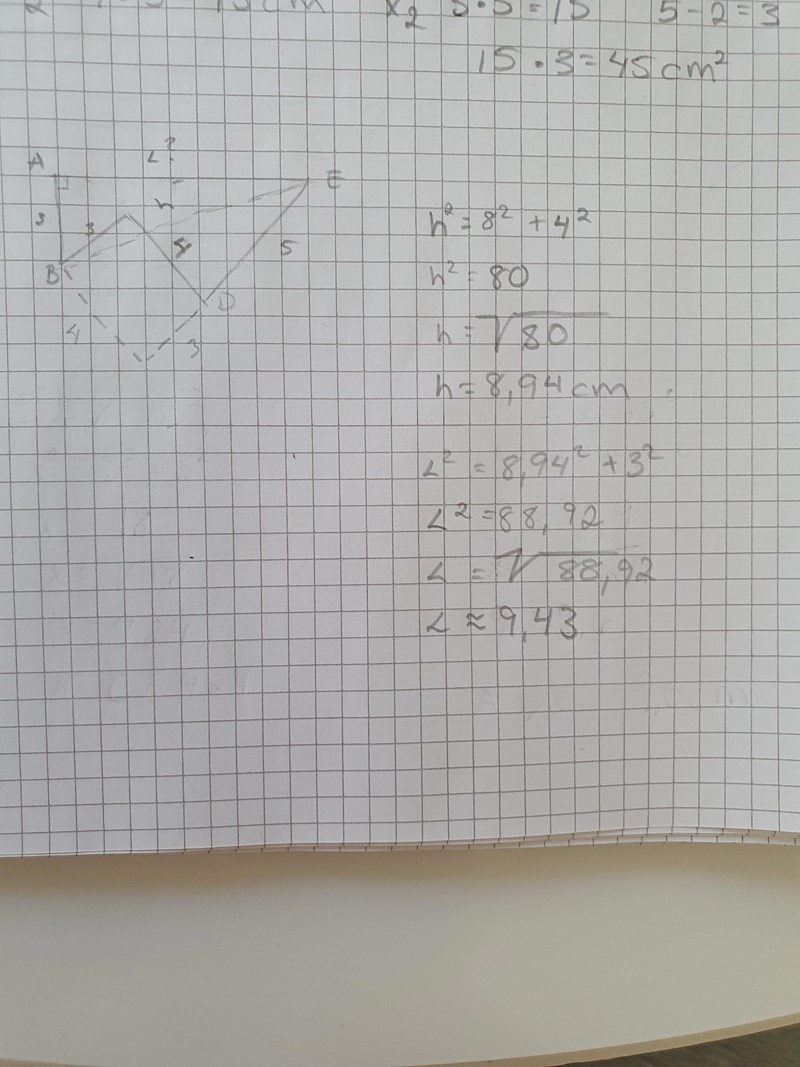 x₂ 5·3=15 5-2=3
15·3=45cm²
A
L?
E
h
3
3
4
5
B
D
4
3
h²=8²+4²
h²=80
h=√80
h=8,94cm
L²=8,94²+3²
L²=88,92
L=√88,92
L≈9,43